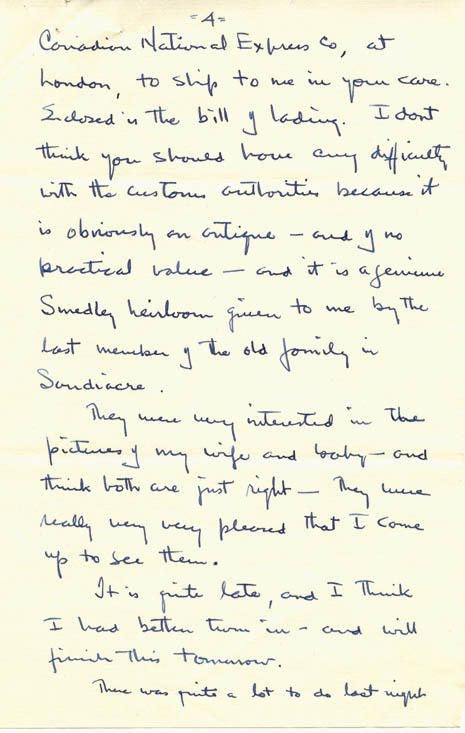 =4=
Canadian National Express Co, at
London, to ship to me in your care.
Enclosed is the bill of lading. I dont
think you should have any difficulty
with the customs authorities because it
is obviously an antique – and of no
practical value – and it is a genuine
Smedley heirloom given to me by the
last member of the old family in
Sandiacre.
They were very interested in the
pictures of my wife and baby – and
think both are just right – They were
really very very pleased that I came
up to see them.
It is quite late, and I think
I had better turn in – and will
finish this tomorrow.
There was quite a lot to do last night